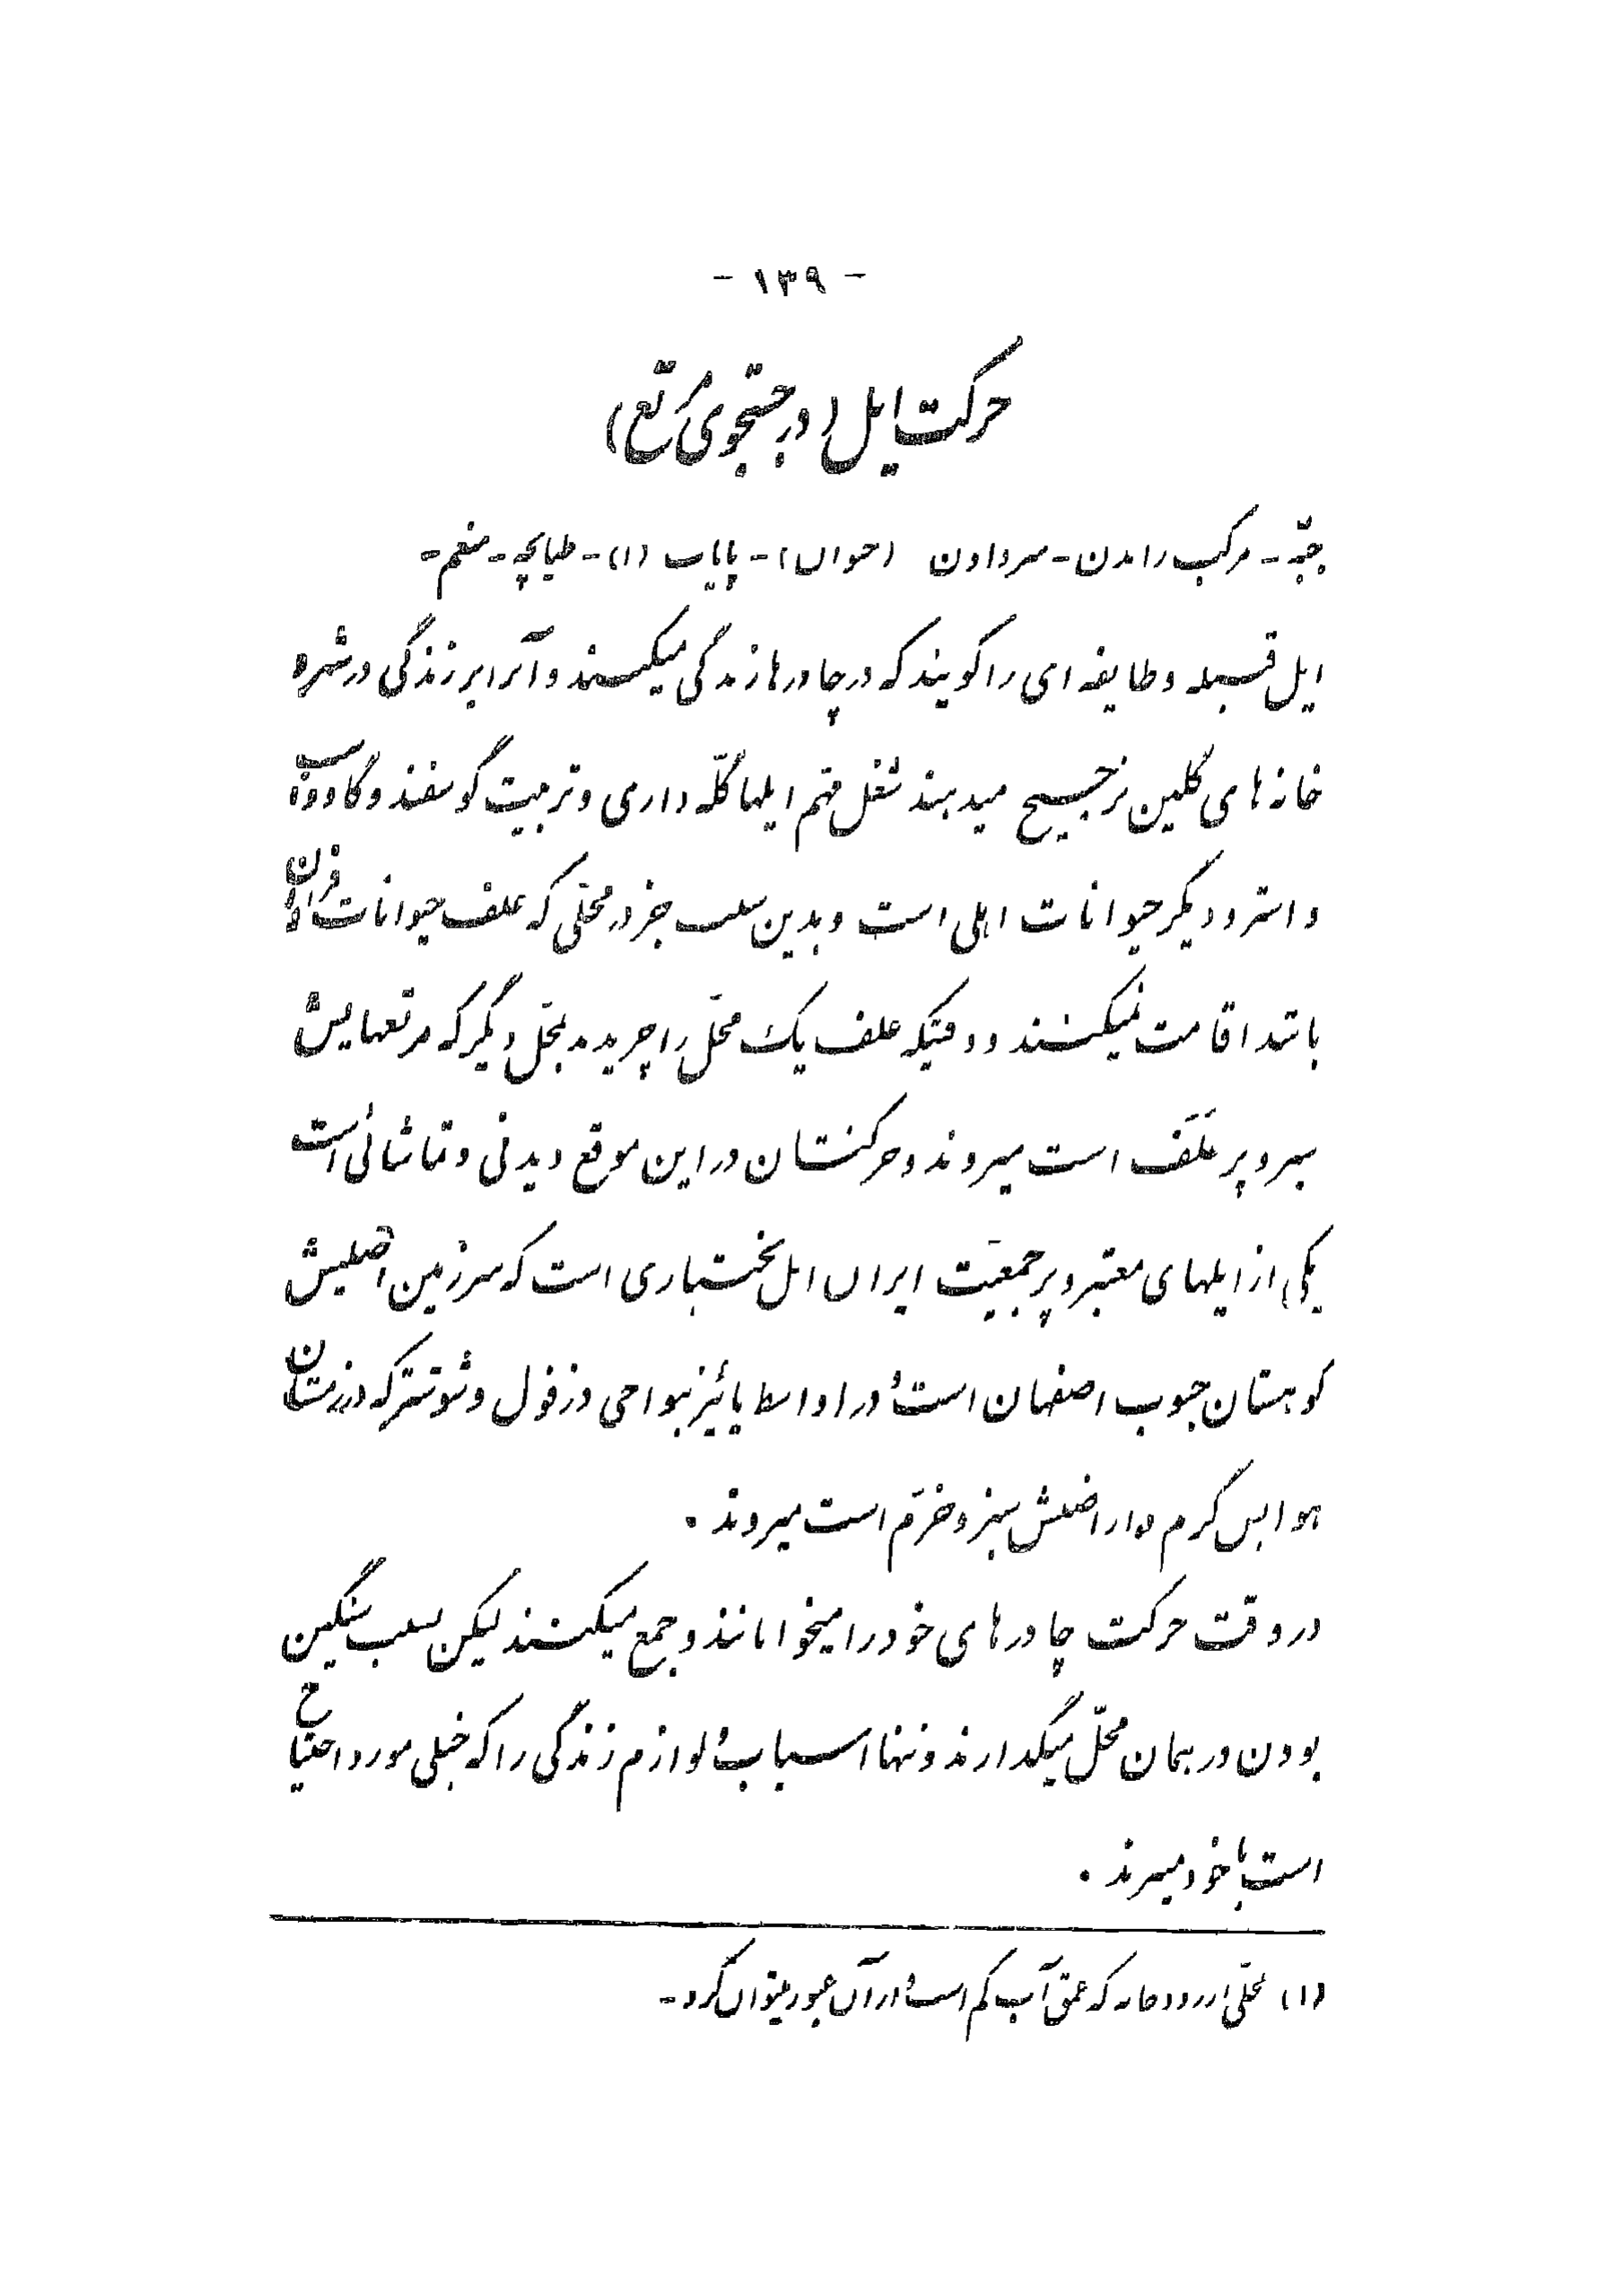 - ۱۳۹ -
حرکت ایل (در جستجوی مرتع)
جبّه - مرکب راندن - سردادن (حیوان) - پایاب (۱) - طپانچه - منعم -
ایل قبیله و طایفه ای را گویند که در چادرها زندگی میکنند و آنرا بر زندگی در شهر و
خانه های گلین ترجیح میدهند شغل مهم ایلها گلّه داری و تربیت گوسفند و گاو و اسب
و استر و دیگر حیوانات اهلی است و بدین سبب جز در محلّی که علف حیوانات فراوان
باشد اقامت نمیکنند و وقتیکه علف یک محلّ را چریدند بمحلّ دیگر که مرتعهایش
سبز و پر علَف است میروند و حرکتشان در این موقع دیدنی و تماشائی است
یکی از ایلهای معتبر و پر جمعیّت ایران ایل بختیاری است که سرزمین اصلیش
کوهستان جنوب اصفهان است و در اواسط پائیز بنواحی دزفول و شوشتر که در زمستان
هوایش گرم و اراضیش سبز و خرّم است میروند .
در وقت حرکت چادرهای خود را میخوابانند و جمع میکنند لیکن بسبب سنگین
بودن در همان محلّ میگذارند و تنها اسباب و لوازم زندگی را که خیلی مورد احتیاج
است با خود میبرند .
(۱) محلّی از رودخانه که عمق آب کم است و از آن عبور میتوان کرد -